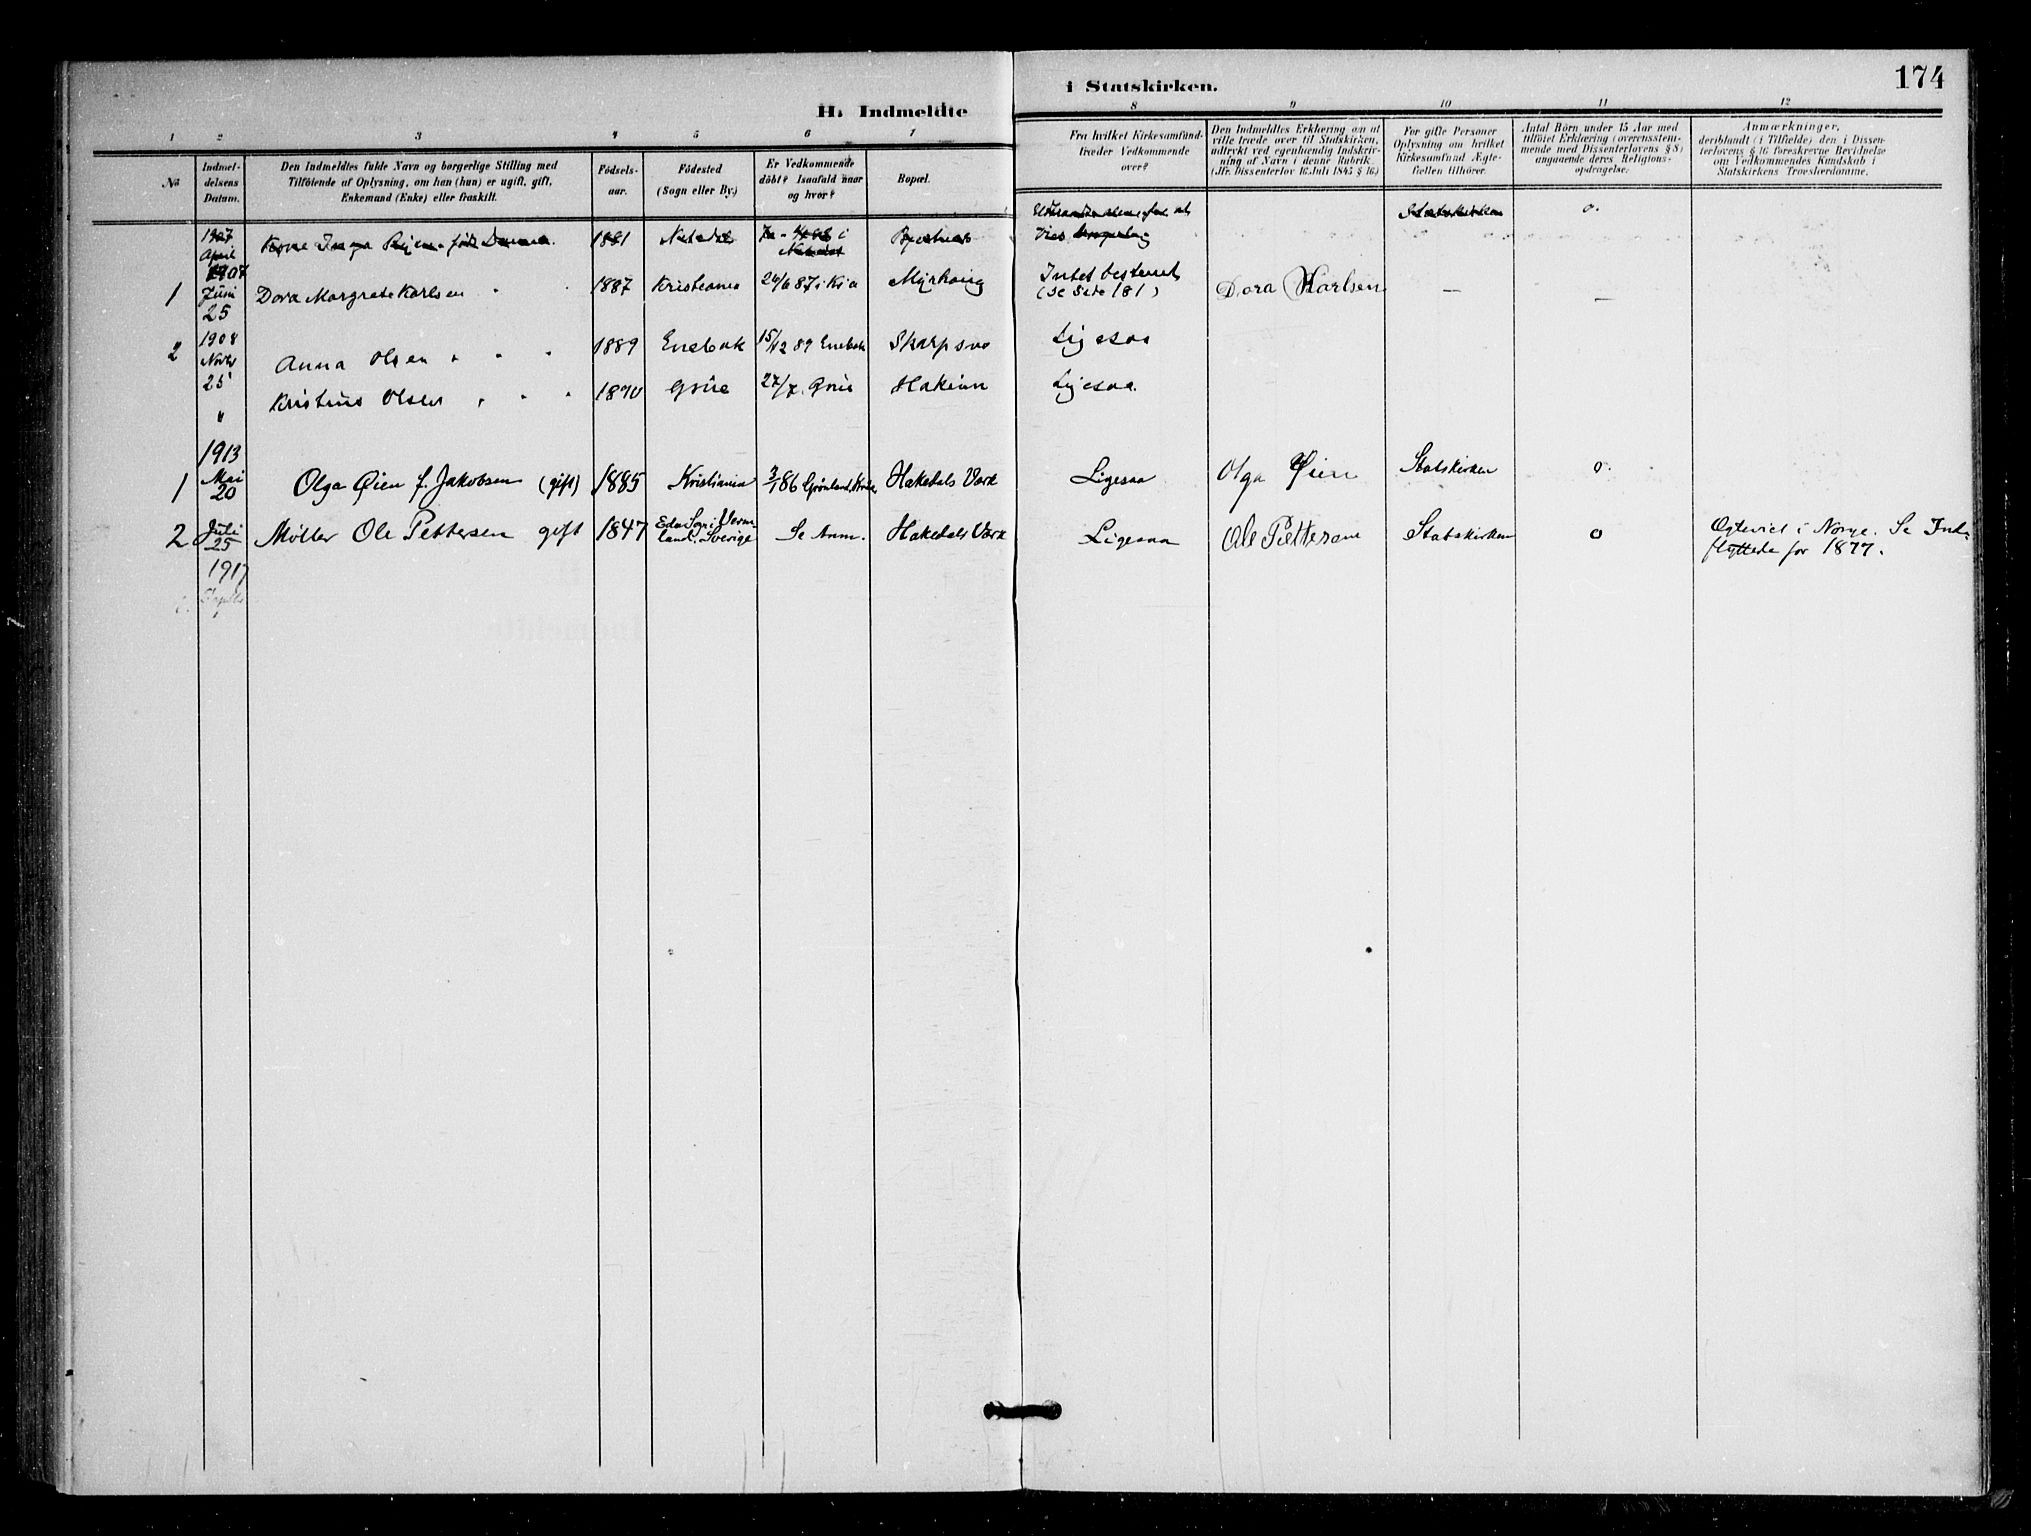 174
H. Indmeldte i Statskirken.
1 2 3 4 5 6 7 8 9 10 11 12
No
Indmel-
delsens
Datum.
Den Indmeldtes fulde Navn og borgerlige Stilling med
Tilföiende af Oplysning, om han (hun) er ugift, gift,
Enkemand (Enke) eller fraskilt.
Födsels-
aar.
Födested
(Sogn eller By.)
Er Vedkommende
döbt? Isaafald naar
og hvor?
Bopæl.
Fra hvilket Kirkesamfund
træder Vedkommende
over?
Den Indmeldtes Erklæring om at
ville træde over til Statskirken,
udtrykt ved egenhændig Indskriv-
ning af Navn i denne Rubrik.
(Jfr. Dissenterlov 16 Juli 1845 § 16)
For gifte Personer
Oplysning om hvilket
Kirkesamfund Ægte-
fællen tilhörer.
Antal Börn under 15 Aar med
tilföiet Erklæring (overensstem-
mende med Dissenterlovens § 8)
angaaende deres Religions-
opdragelse.
Anmærkninger,
deriblandt (i Tilfælde) den i Dissen-
terlovens § 16 foreskrevne Bevidnelse
om Vedkommendes Kundskab i
Statskirkens Troeslærdomme.
1907
April
Kone Inga 1881 Statskirken 0.
1 1907
Juni
25
Dora Margrete Karlsen " " 1887 Kristiania 24/6 87 i Kia Myrhaug Intet bestemt
(se Side 181) Dora Karlsen — —
2 1908
Novbr
25
Anna Olsen " " " 1889 Enebak 15/12 89 Enebak Skarpsno Ligesaa
" Kristine Olsen " " " 1890 Grue 27/7. Grue Hakeim Ligesaa
1913
1 Mai
20
Olga Øien f. Jakobsen (gift) 1885 Kristiania 3/1 86 Grønland, Hakedals Værk Ligesaa Olga Øien Statskirken 0
2 Juli
25
Møller Ole Pettersen gift 1847 Eda Sogn i Verm-
land. Sverige Se Anm. Hakedals Værk Ligesaa Ole Petterson Statskirken 0 Ægteviet i Norge. Se Ind-
flyttede for 1877.
1917